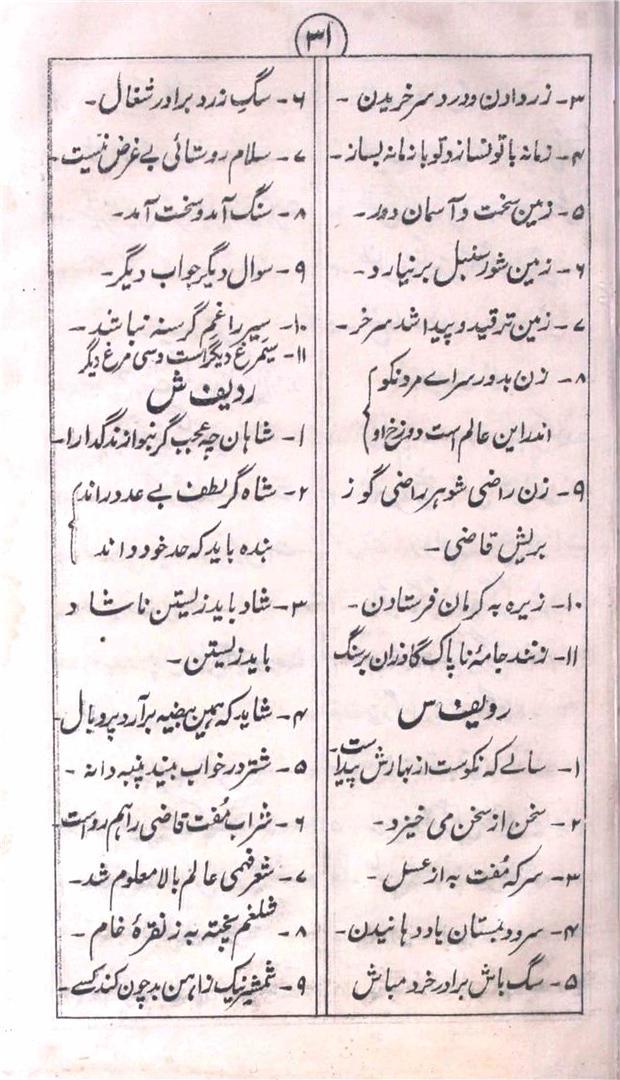 ۳۱
۳- زر دادن و درد سر خریدن -
۴- زمانہ با تو نسازد تو با زمانہ بساز -
۵- زمین سخت و آسمان دور -
۶- زمین شور سنبل بر نیارد -
۷- زمین ترقید و پیدا شد سر خر -
۸- زن بد در سرائے مرد نکو
اندر این عالم است دوزخ او
۹- زن راضی شوہر راضی گوز
بریش قاضی -
۱۰- زیرہ بہ کرمان فرستادن -
۱۱- زنند جامۂ ناپاک گاذران بر سنگ
ردیف س
۱- سالے کہ نکوست از بہارش پیداست -
۲- سخن از سخن می خیزد -
۳- سرکہ مُفت بہ از عسل -
۴- سرود بمستان یاد دہانیدن -
۵- سگ باش برادر خرد مباش
۶- سگِ زرد برادر شغال -
۷- سلام روستائی بے غرض نیست -
۸- سنگ آمد و سخت آمد -
۹- سوال دیگر جواب دیگر -
۱۰- سیر را غم گرسنہ نباشد -
۱۱- سیمرغ دیگر است و سی مرغ دیگر
ردیف ش
۱- شاہان چہ عجب گر بنوازند گدا را -
۲- شاہ گر لطف بے عدد راند
بندہ باید کہ حد خود داند
۳- شاد باید زیستن ناشاد
باید زیستن -
۴- شاید کہ ہمین بیضہ برآرد پر و بال -
۵- شتر در خواب بیند پنبہ دانہ -
۶- شراب مُفت قاضی را ہم رواست -
۷- شعر فہمی عالم بالا معلوم شد -
۸- شلغم پختہ بہ ز نقرۂ خام -
۹- شمشیر نیک ز آہن بد چون کند کسے -